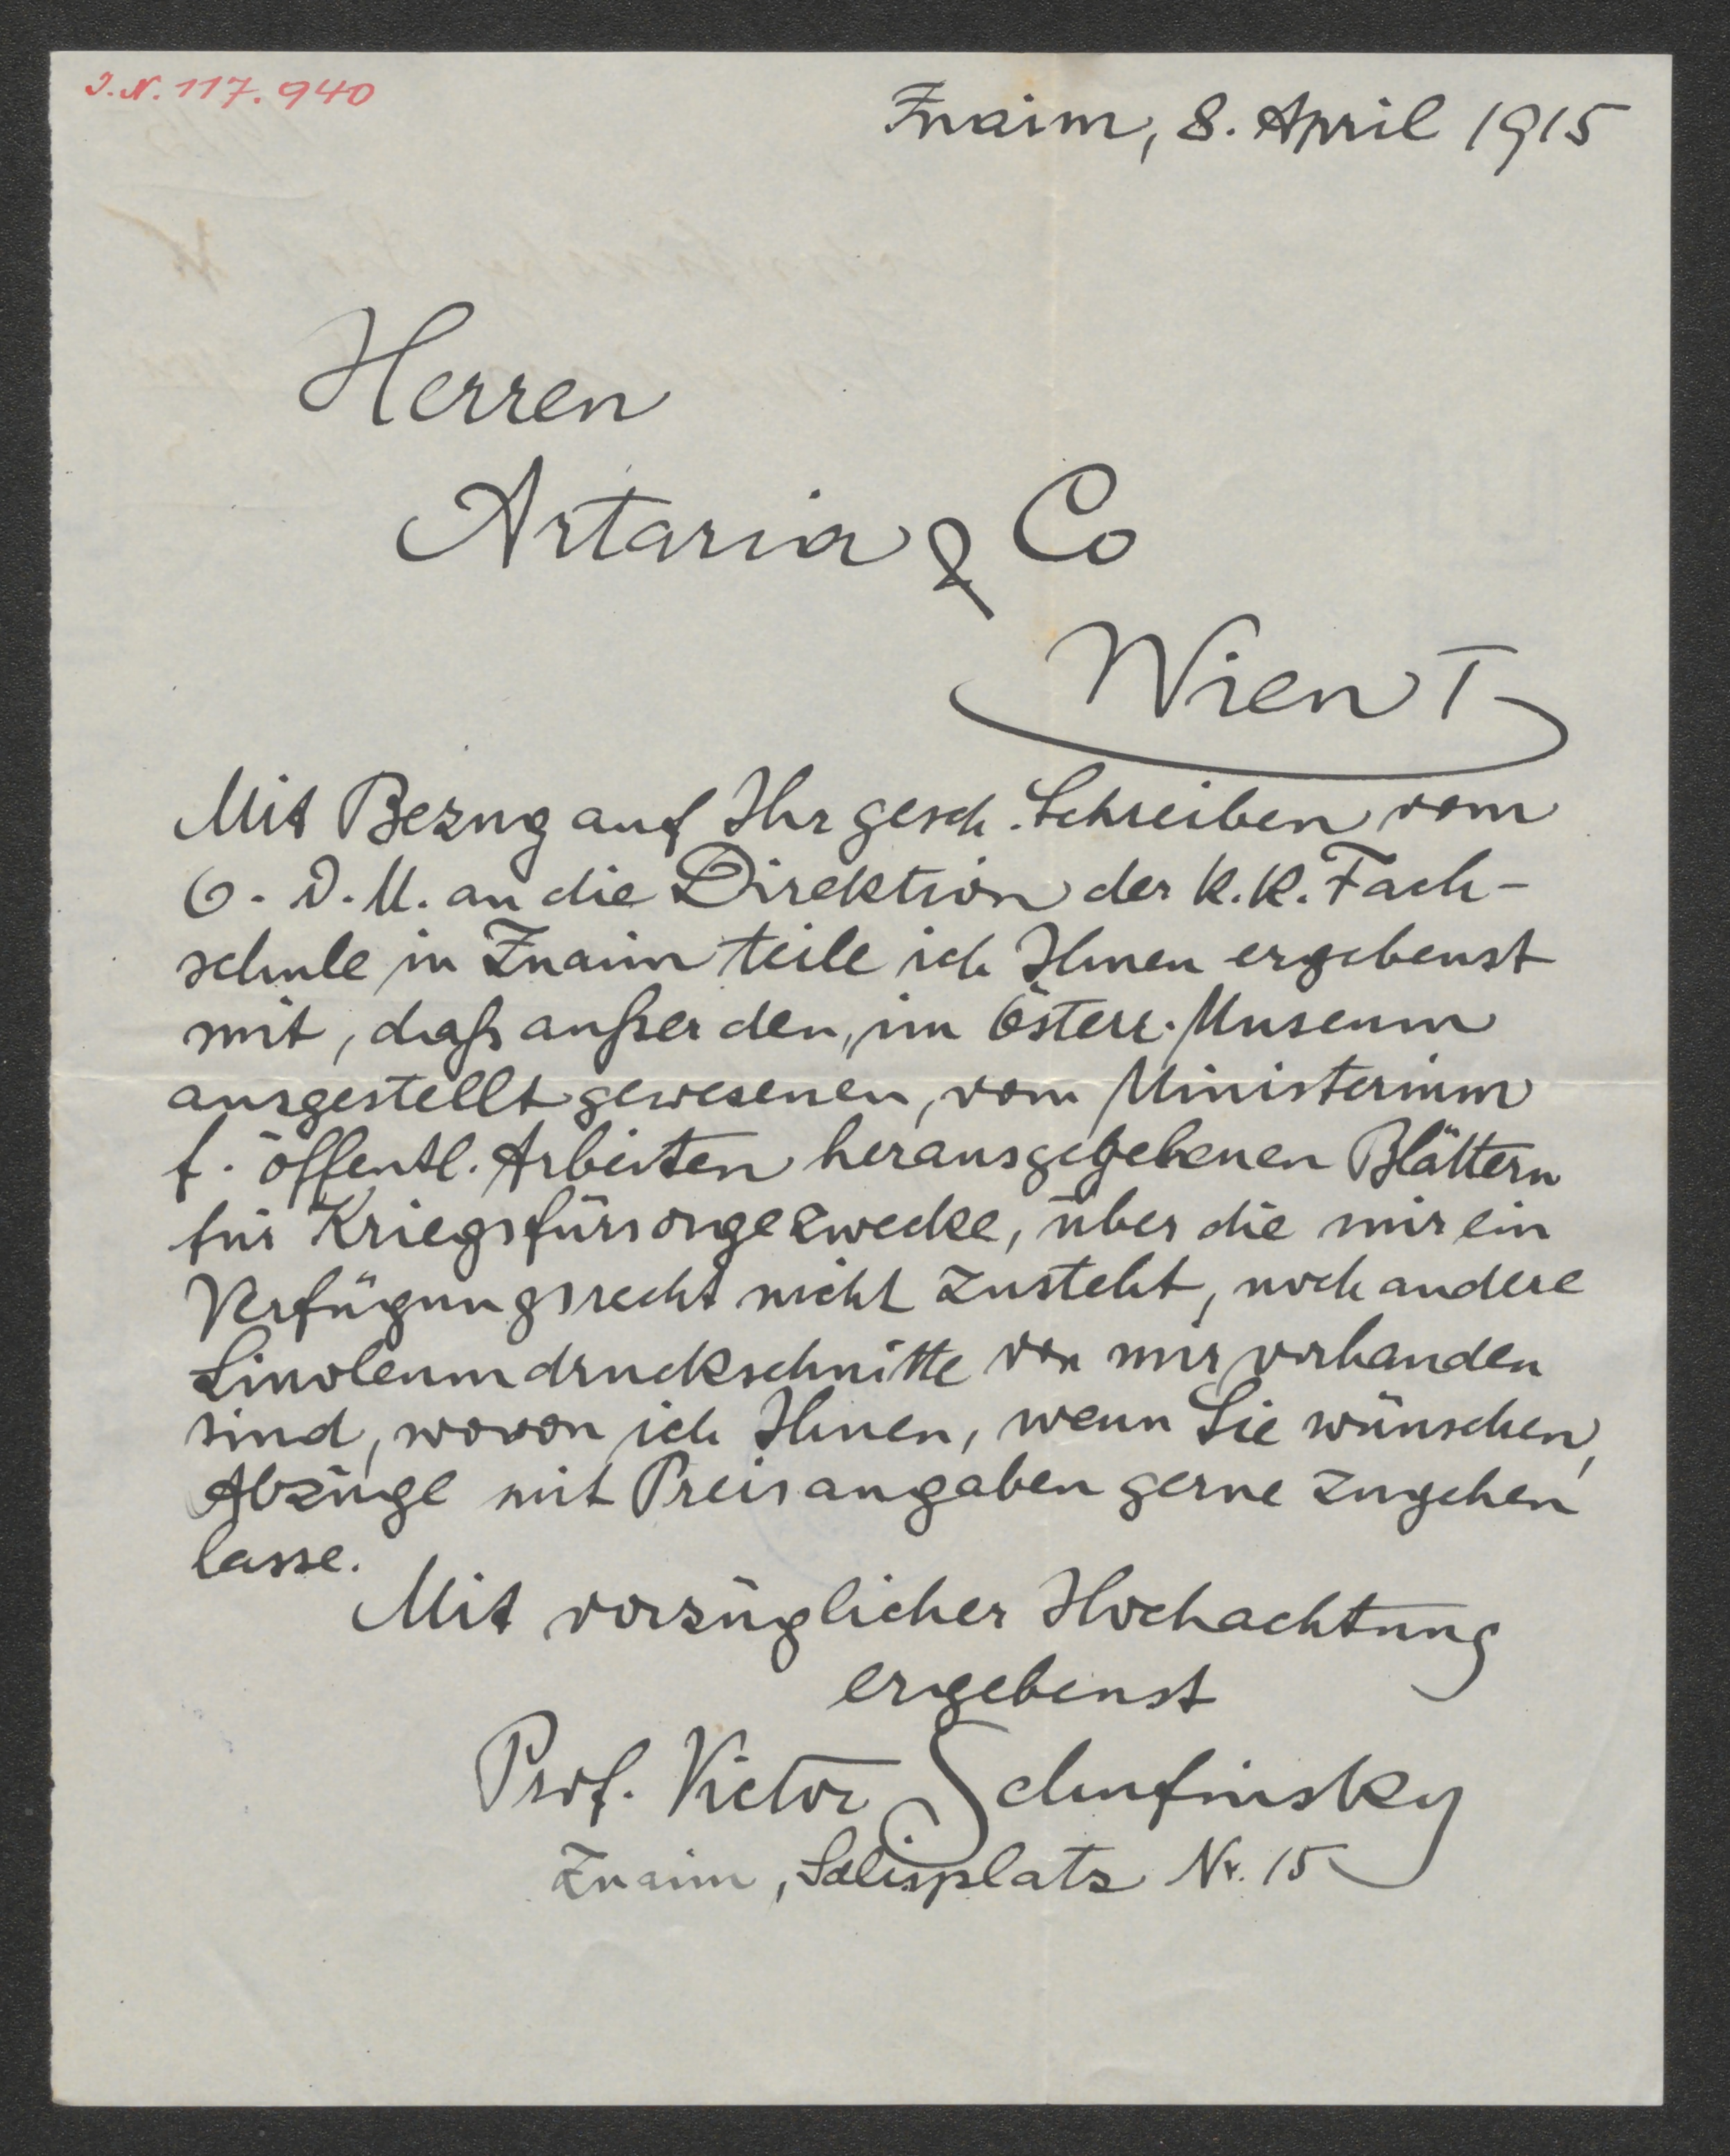 J.N. 117.940
Znaim, 8. April 1915
Herren
Artaria & Co
Wien I
Mit Bezug auf Ihr gesch. Schreiben vom
6. d. M. an die Direktion der k.k. Fach-
schule in Znaim teile ich Ihnen ergebenst
mit, daß außer den, im Österr. Museum
ausgestellt gewesenen, vom Ministerium
f. öffentl. Arbeiten herausgegebenen Blättern
für Kriegsfürsorgezwecke, über die mir ein
Verfügungsrecht nicht zusteht, noch andere
Linoleumdruckschnitte von mir vorhanden
sind, wovon ich Ihnen, wenn Sie wünschen,
Abzüge mit Preisangaben gerne zugehen
lasse.
Mit vorzüglicher Hochachtung
ergebenst
Prof. Victor Schufinsky
Znaim, Salisplatz Nr. 15